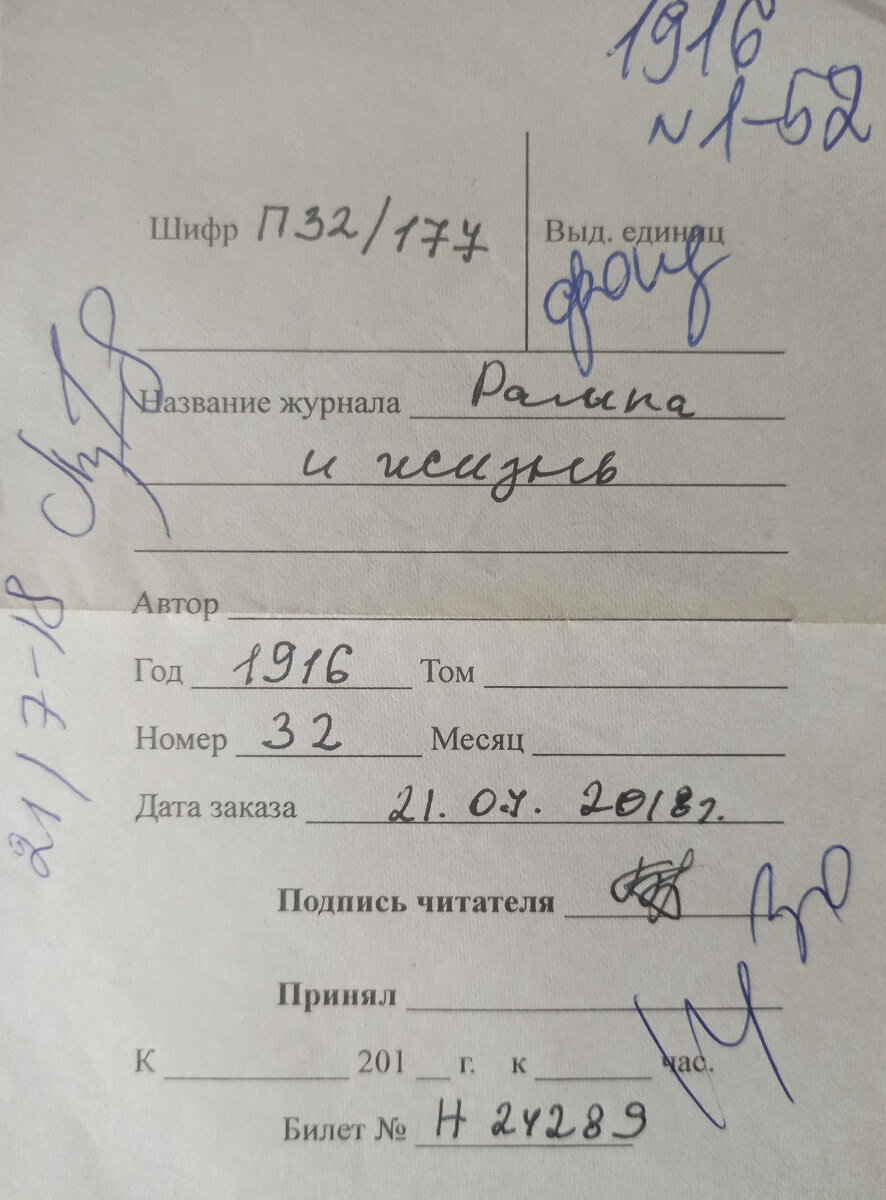 1916
N 1-52
Шифр П32/177
Выд. единиц
фонд
Название журнала Рампа
и жизнь
Автор
Год 1916 Том
Номер 32 Месяц
Дата заказа 21.07. 2018г.
Подпись читателя
Принял
К 201 г. к час.
Билет № Н 24289
21/7-18